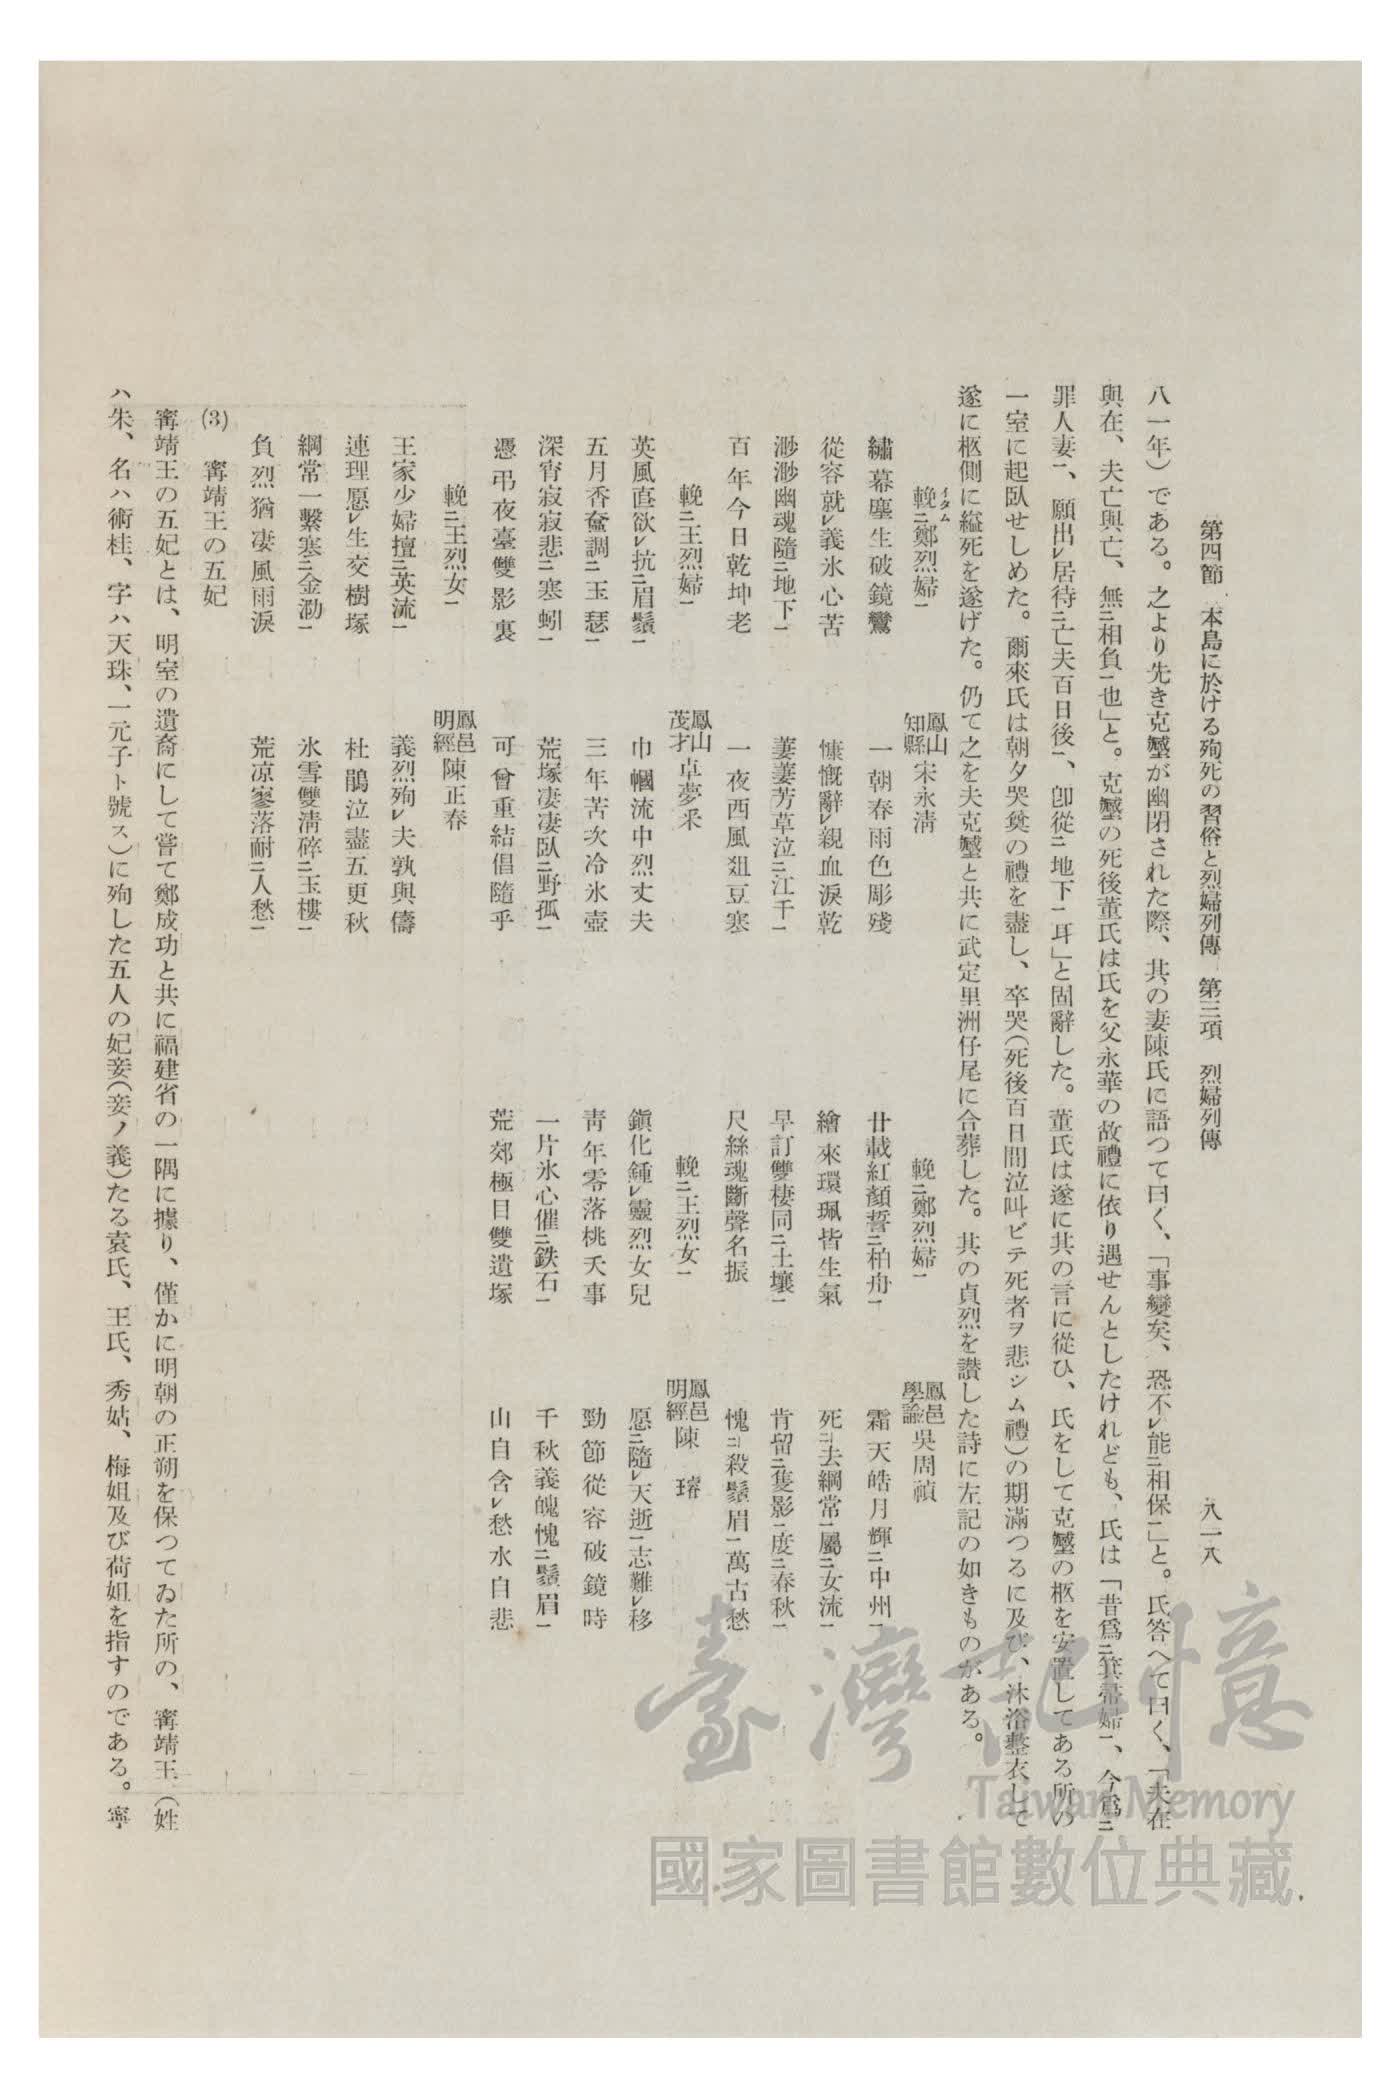 第四節　本島に於ける殉死の習俗と烈婦列傳　第三項　烈婦列傳　　八一八
八一年）である。之より先き克𡒉が幽閉された際、其の妻陳氏に語つて曰く、「事變矣、恐不㆑能㆓相保㆒」と。氏答へて曰く、「夫在
與在、夫亡與亡、無㆓相負㆒也」と。克𡒉の死後董氏は氏を父永華の故禮に依り遇せんとしたけれども、氏は「昔爲㆓箕箒婦㆒、今爲㆓
罪人妻㆒、願出㆑居待㆓亡夫百日後㆒、卽從㆓地下㆒耳」と固辭した。董氏は遂に其の言に從ひ、氏をして克𡒉の柩を安置してある所の
一室に起臥せしめた。爾來氏は朝夕哭奠の禮を盡し、卒哭（死後百日間泣叫ビテ死者ヲ悲シム禮）の期滿つるに及び、沐浴整衣して
遂に柩側に縊死を遂げた。仍て之を夫克𡒉と共に武定里洲仔尾に合葬した。其の貞烈を讃した詩に左記の如きものがある。
輓㆓鄭烈婦㆒　鳳山知縣　宋永淸
イタム
繡幕塵生破鏡鸞　一朝春雨色彫殘
從容就㆑義氷心苦　慷慨辭㆑親血淚乾
渺渺幽魂隨㆓地下㆒　萋萋芳草泣㆓江干㆒
百年今日乾坤老　一夜西風俎豆寒
輓㆓王烈婦㆒　鳳山茂才　卓夢采
英風直欲㆑抗㆓眉鬚㆒　巾幗流中烈丈夫
五月香奩調㆓玉瑟㆒　三年苦次冷氷壺
深宵寂寂悲㆓寒蚓㆒　荒塚凄凄臥㆓野孤㆒
憑弔夜臺雙影裏　可曾重結倡隨乎
輓㆓王烈女㆒　鳳邑明經　陳正春
王家少婦擅㆓英流㆒　義烈殉㆑夫孰與儔
連理愿㆑生交樹塚　杜鵑泣盡五更秋
綱常一繫塞㆓金泐㆒　氷雪雙淸碎㆓玉樓㆒
負烈猶凄風雨淚　荒凉寥落耐㆓人愁㆒
輓㆓鄭烈婦㆒　鳳邑學諭　吳周禎
廿載紅顏誓㆓柏舟㆒　霜天皓月輝㆓中州㆒
繪來環珮皆生氣　死㆓去綱常㆒屬㆓女流㆒
早訂雙棲同㆓土壤㆒　肯留㆓隻影㆒度㆓春秋㆒
尺絲魂斷聲名振　愧㆓殺鬚眉㆒萬古愁
輓㆓王烈女㆒　鳳邑明經　陳　璿
鎭化鍾㆑靈烈女兒　愿㆓隨㆑天逝㆒志難㆑移
靑年零落桃夭事　勁節從容破鏡時
一片氷心催㆓鉄石㆒　千秋義魄愧㆓鬚眉㆒
荒郊極目雙遺塚　山自含㆑愁水自悲
(3)　寗靖王の五妃
寗靖王の五妃とは、明室の遺裔にして嘗て鄭成功と共に福建省の一隅に據り、僅かに明朝の正朔を保つてゐた所の、寗靖王（姓
ハ朱、名ハ術桂、字ハ天珠、一元子ト號ス）に殉した五人の妃妾（妾ノ義）たる袁氏、王氏、秀姑、梅姐及び荷姐を指すのである。寧
臺灣記憶
Taiwan Memory
國家圖書館數位典藏